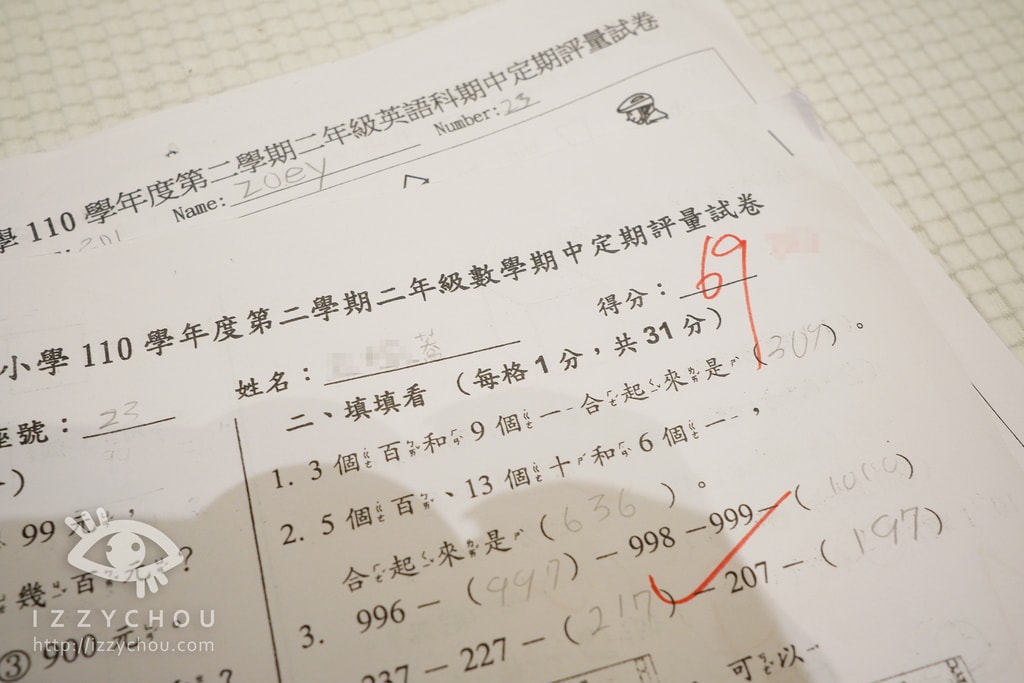 學 110 學年度第二學期二年級英語科期中定期評量試卷
201
Name: zoey
Number: 23
小學 110 學年度第二學期二年級數學期中定期評量試卷
座號：23
姓名：
得分：69
二、填填看（每格 1 分，共 31 分）
1. 3 個百和 9 個一合起來是（309）。
2. 5 個百、13 個十和 6 個一，
合起來是（636）。
3. 996－（997）－998－999－（1000）
237－227－（217）－207－（197）
可以
99 元，
幾百元？
③ 900 元。
？
IZZYCHOU
http://izzychou.com